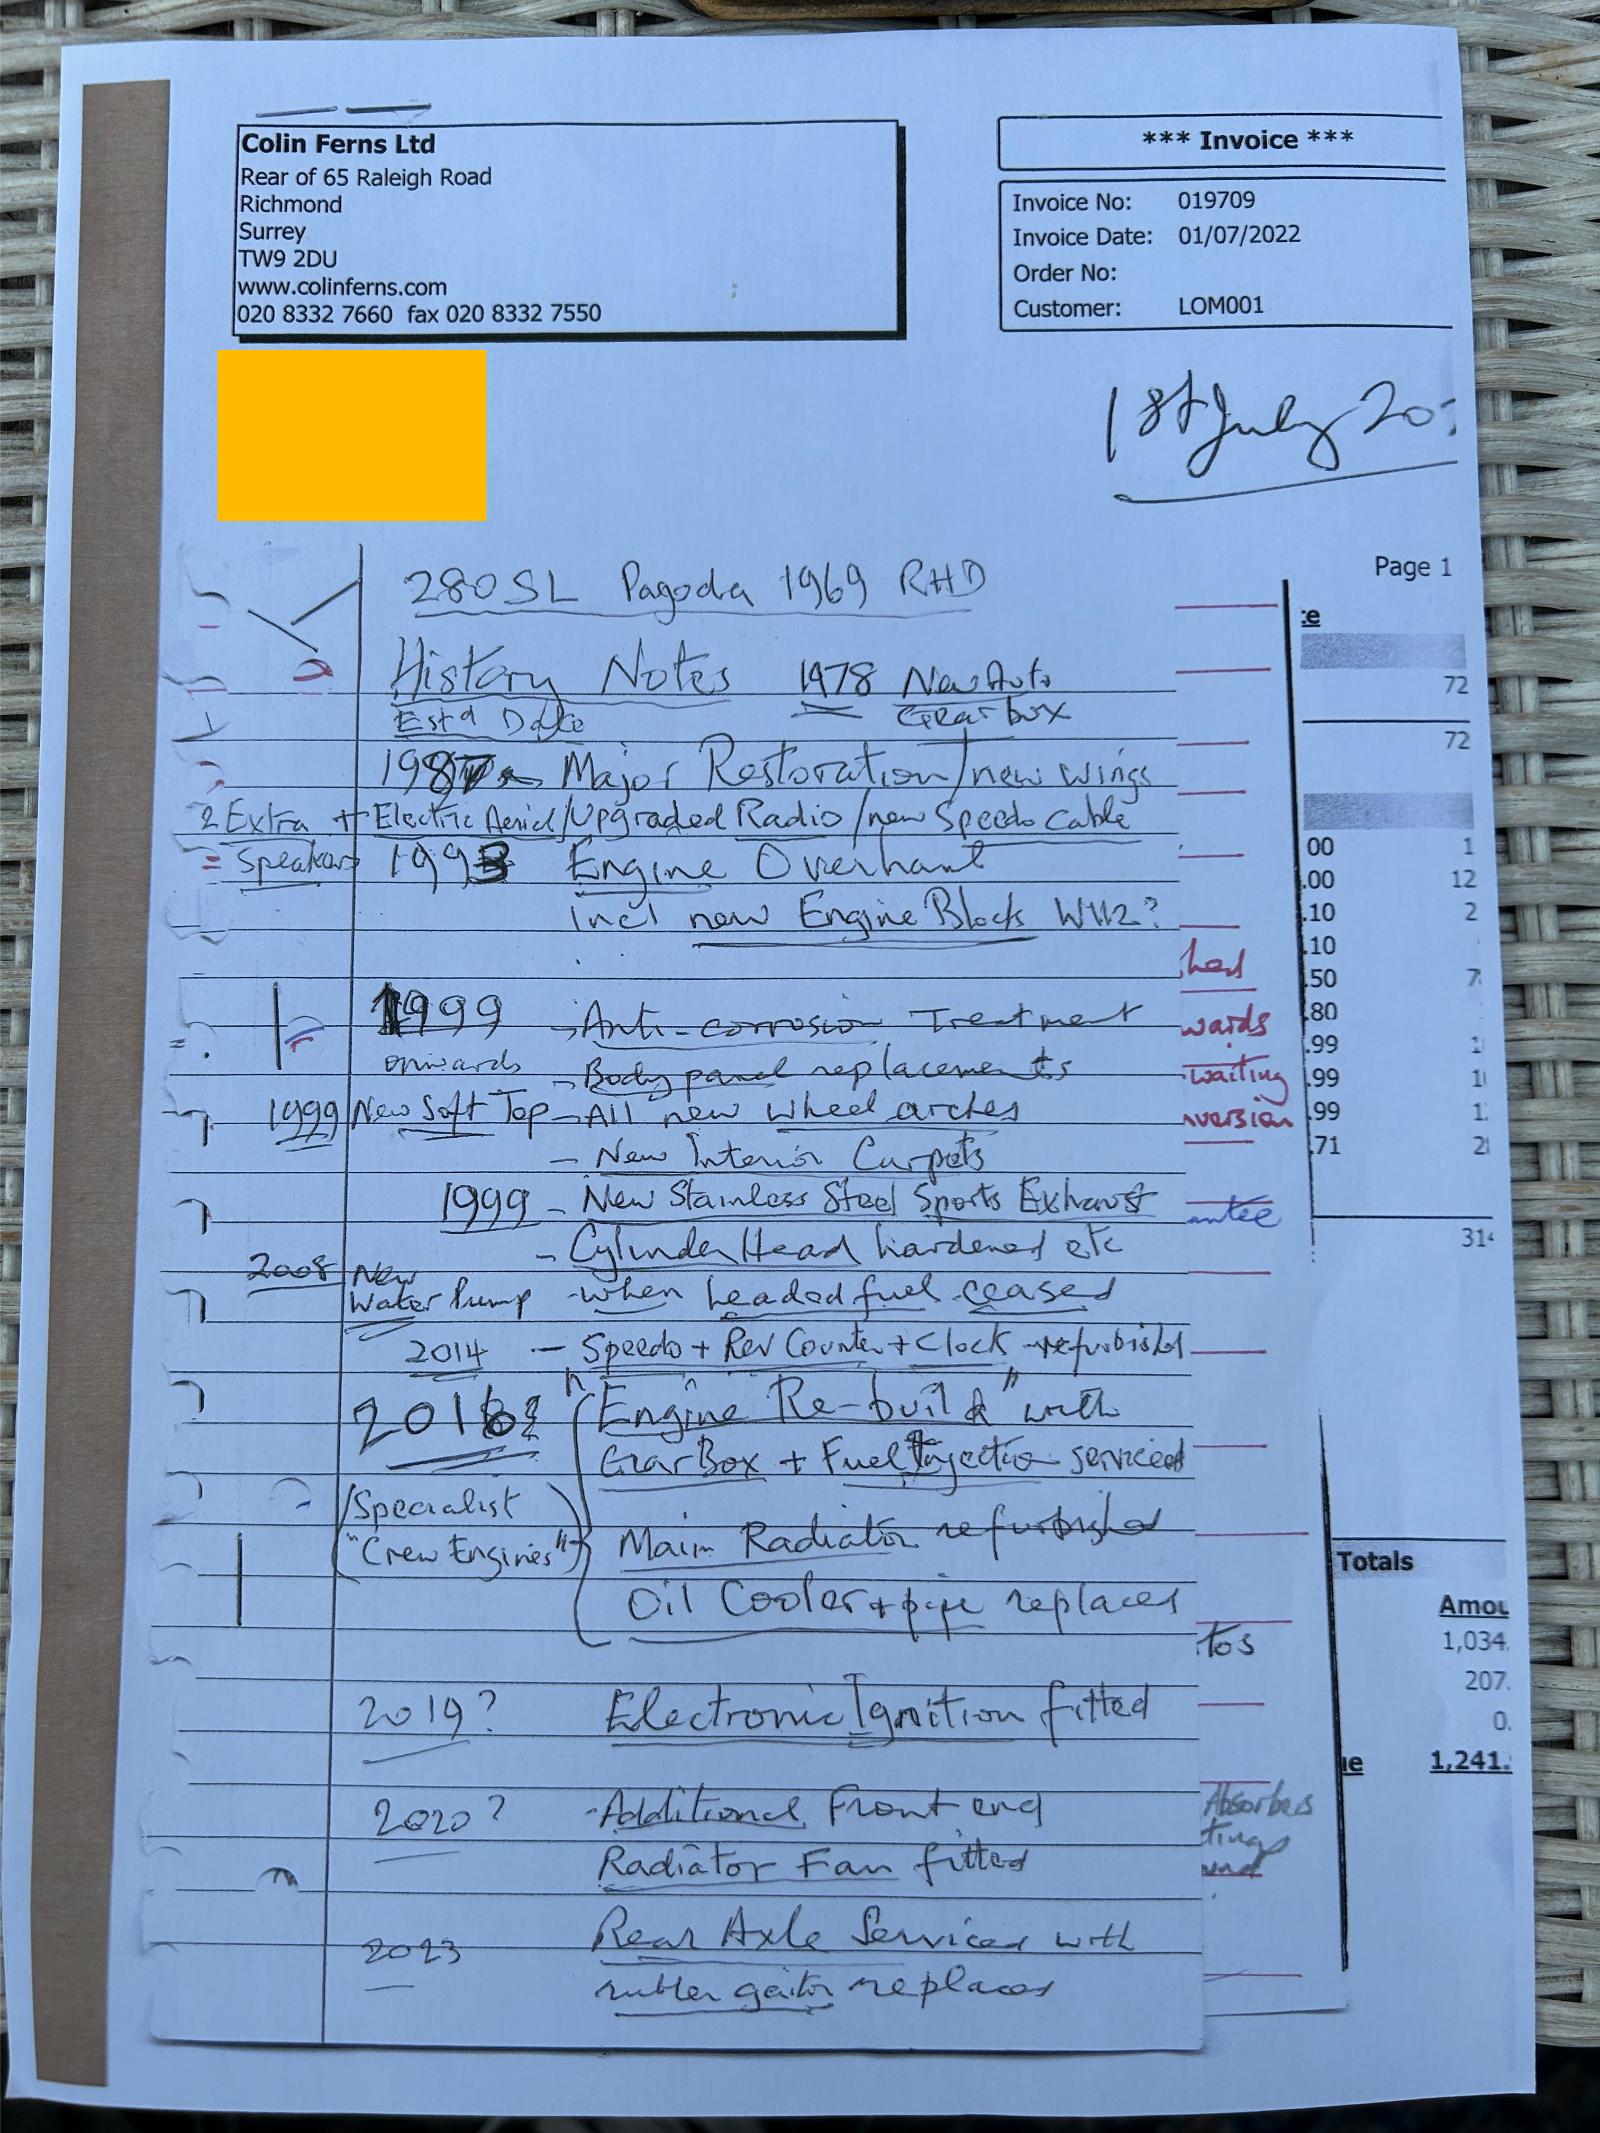 Colin Ferns Ltd
Rear of 65 Raleigh Road
Richmond
Surrey
TW9 2DU
www.colinferns.com
020 8332 7660 fax 020 8332 7550
*** Invoice ***
Invoice No: 019709
Invoice Date: 01/07/2022
Order No:
Customer: LOM001
1st July 20
Page 1
280SL Pagoda 1969 RHD
History Notes 1978 New Auto
Est'd Date Gearbox
1987 Major Restoration/new wings
2 Extra + Electric Aerial/Upgraded Radio/new Speedo Cable
= Speakers 1993 Engine Overhaul
incl new Engine Block W112?
1999 - Anti-corrosion Treatment
onwards - Body panel replacements
1999 New Soft Top - All new wheel arches
- New Interior Carpets
1999 - New Stainless Steel Sports Exhaust
- Cylinder Head hardened etc
2008 New
Water Pump - when leaded fuel ceased
2014 - Speedo + Rev Counter + Clock refurbished
"Engine Re-build" with
Gear Box + Fuel Injection serviced
(Specialist
"Crew Engines") Main Radiator refurbished
Oil Cooler + pipe replaced
2019? Electronic Ignition fitted
2020? - Additional Front end
Radiator Fan fitted
2023 Rear Axle Serviced with
rubber gaitor replaced
:e
72
72
00 1
.00 12
.10 2
.10
.50 7
.80
.99 1
.99 1
.99 1
.71 2
314
hed
wards
waiting
nversion
antee
tos
Absorbers
tings
Totals
Amou
1,034.
207.
0.
ue 1,241.